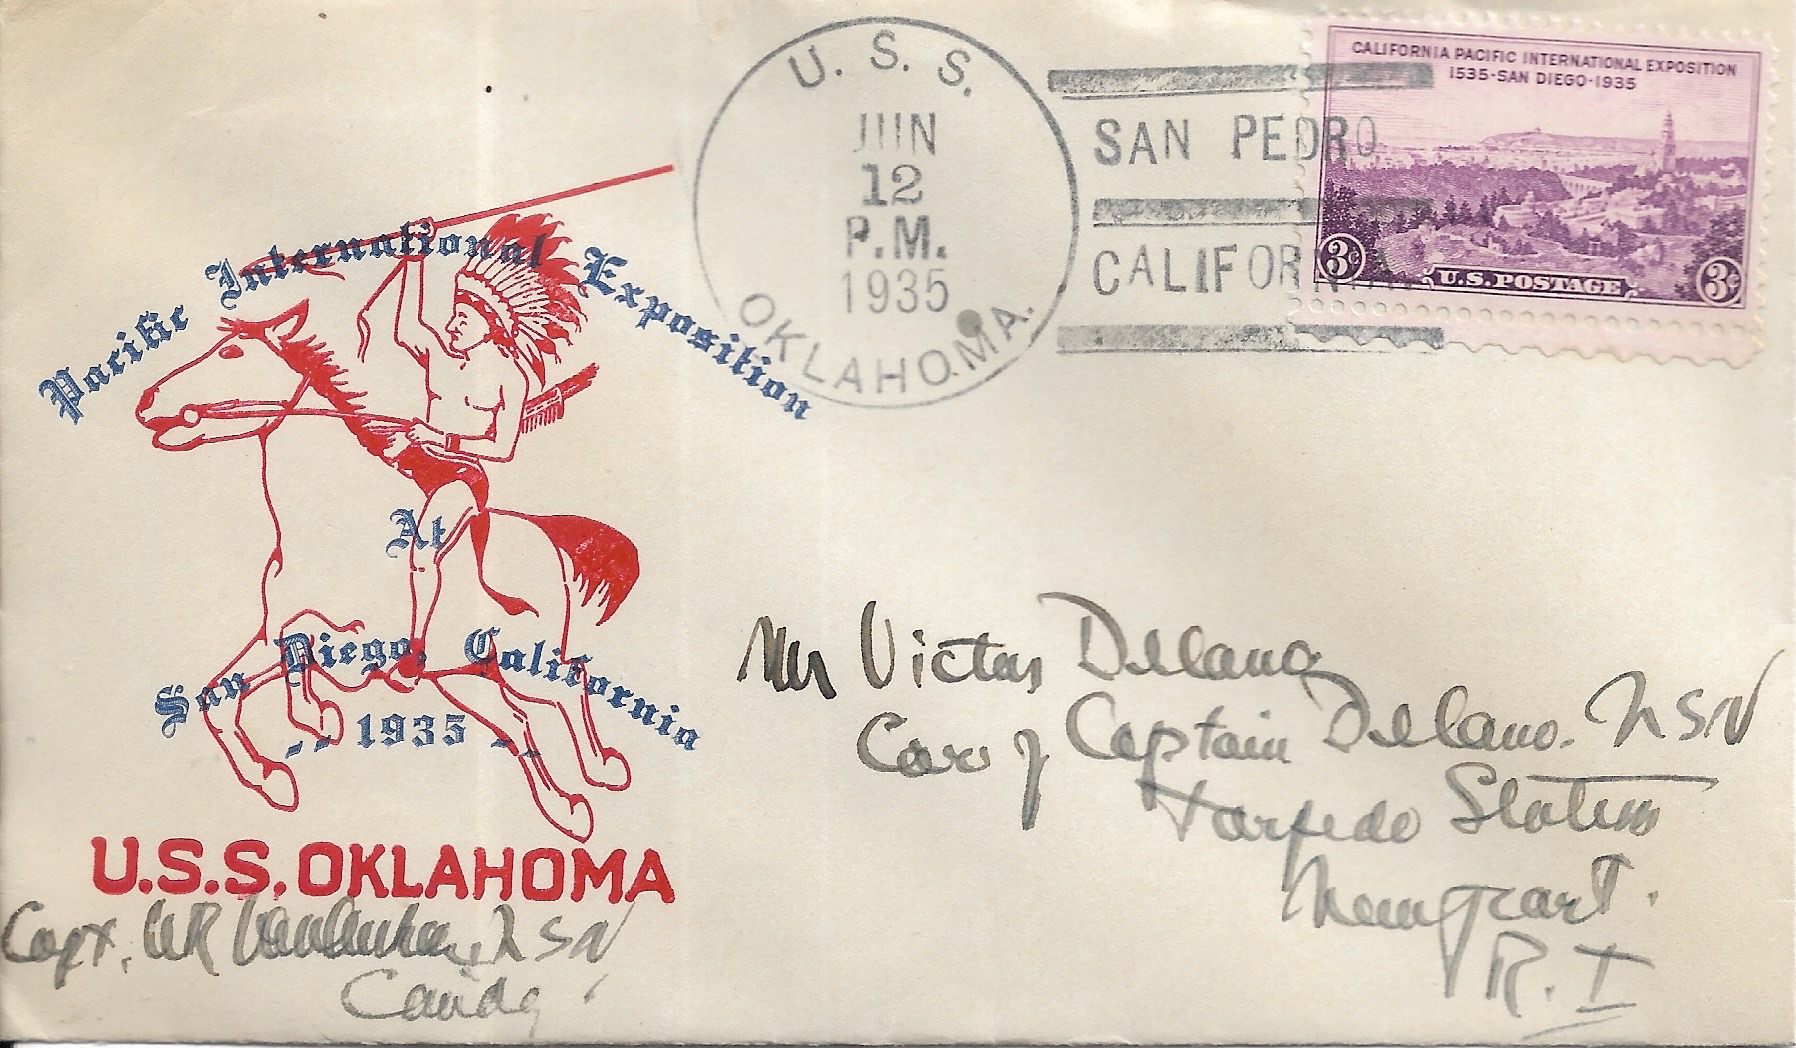 U. S. S.
JUN
12
P.M.
1935
OKLAHOMA.
SAN PEDRO
CALIFORNIA.
CALIFORNIA PACIFIC INTERNATIONAL EXPOSITION
1535-SAN DIEGO-1935
3¢ U.S. POSTAGE 3¢
Pacific International Exposition
At
San Diego, California
-- 1935 --
U.S.S. OKLAHOMA
Capt. WR USN
Comdg.
Mr Victor Delano
Care of Captain Delano. USN
Torpedo Station
Newport.
R. I